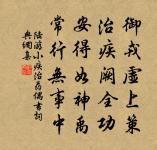 御戎虛上策
治疾闕全功
安得如神禹
常行無事中
陸游小疾治藥偶書詞
典網集